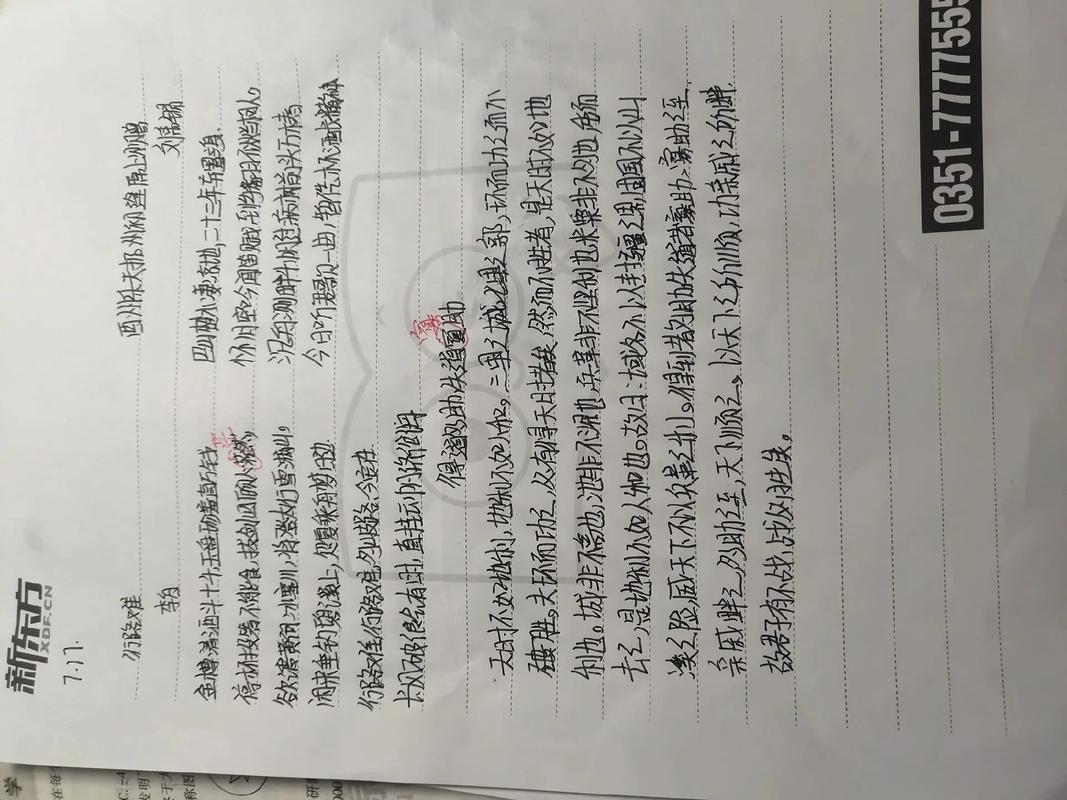 新东方
XDF.CN
7.17.
行路难
李白
金樽清酒斗十千,玉盘珍羞直万钱
停杯投箸不能食,拔剑四顾心茫然。
欲渡黄河冰塞川,将登太行雪满山。
闲来垂钓碧溪上,忽复乘舟梦日边
行路难,行路难,多歧路,今安在
长风破浪会有时,直挂云帆济沧海
酬乐天扬州初逢席上见赠
刘禹锡
巴山楚水凄凉地,二十三年弃置身
怀旧空吟闻笛赋,到乡翻似烂柯人。
沉舟侧畔千帆过,病树前头万木春
今日听君歌一曲,暂凭杯酒长精神
得道多助失道寡助
天时不如地利,地利不如人和。三里之城,七里之郭,环而攻之而不
胜。夫环而攻之,必有得天时者矣,然而不胜者,是天时不如地
利也。城非不高也,池非不深也,兵革非不坚利也,米粟非不多也,委而
去之,是地利不如人和也。故曰:域民不以封疆之界,固国不以山
溪之险,威天下不以兵革之利。得到者多助,失道者寡助。寡助之至,
亲戚畔之,多助之至,天下顺之。以天下之所顺,攻亲戚之所畔
故君子有不战,战必胜矣。
0351-7777555